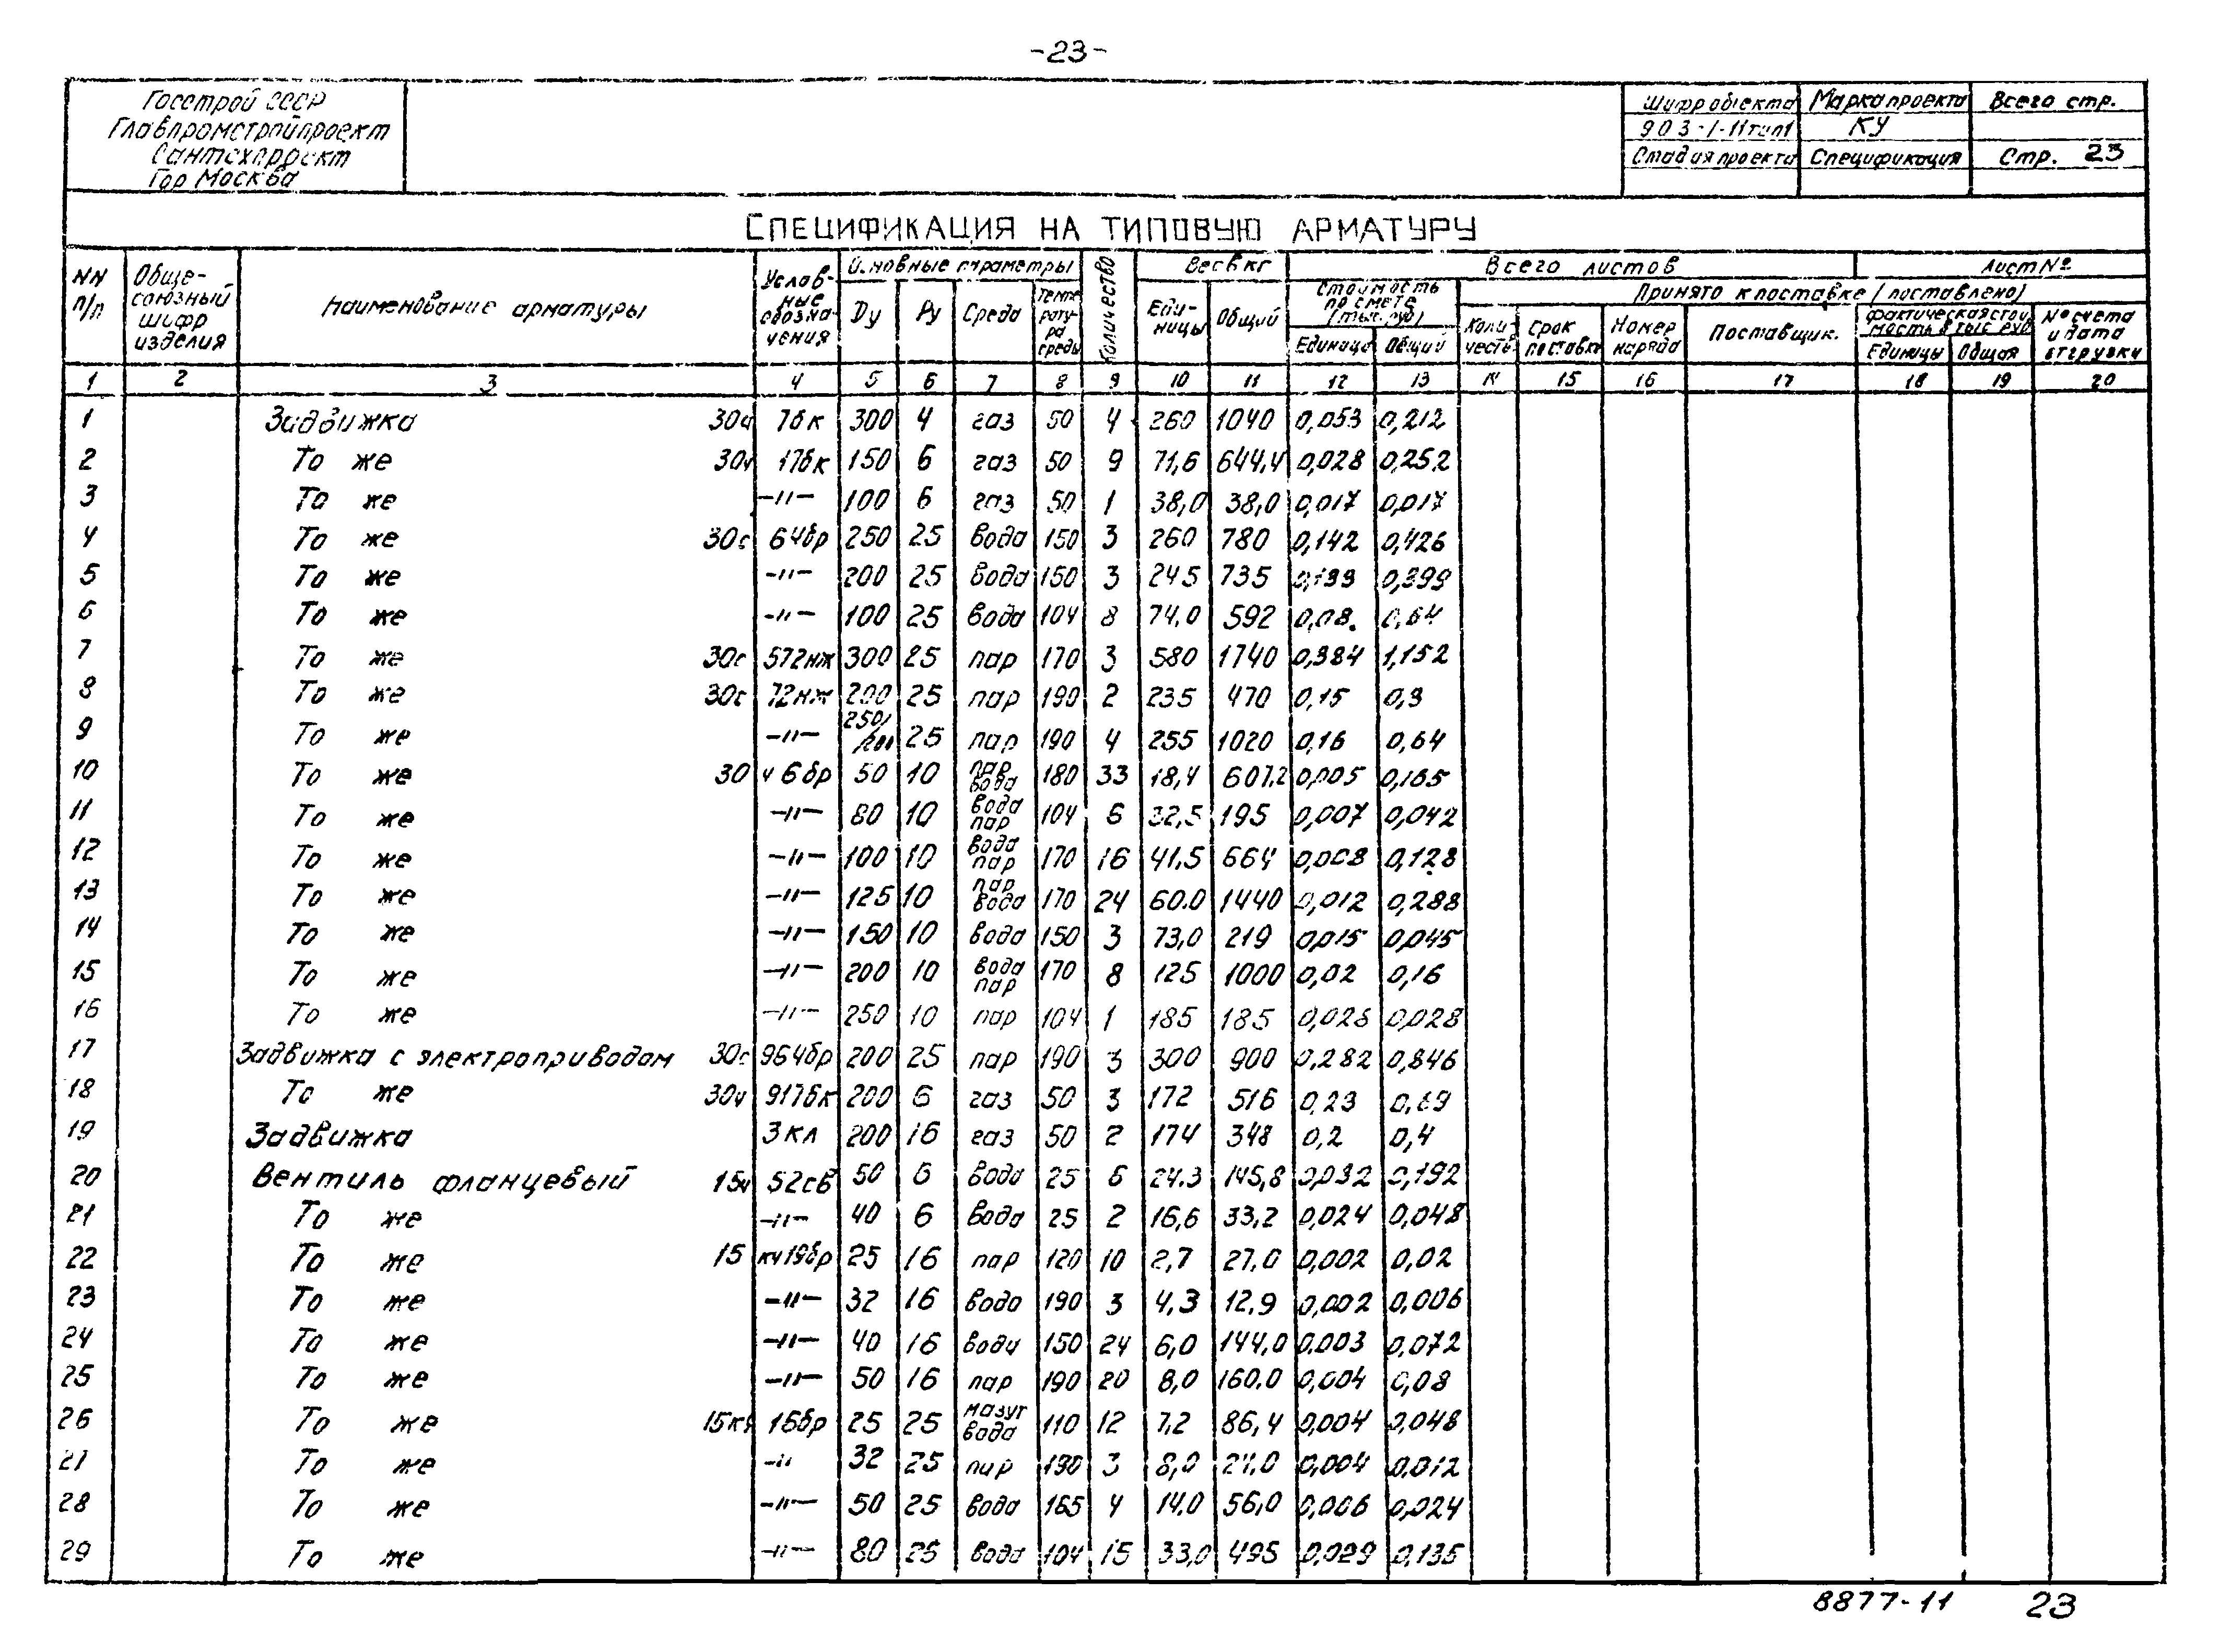 -23-
Госстрой СССР
Главпромстройпроект
Сантехпроект
Гор Москва
Шифр объекта Марка проекта Всего стр.
903-1-11тип1 КУ
Стадия проекта Спецификация Стр. 23
СПЕЦИФИКАЦИЯ НА ТИПОВУЮ АРМАТУРУ
NN п/п Обще-союзный шифр изделия Наименование арматуры Услов-ные обозна-чения Основные параметры Количество Вес в кг Всего листов Лист №
Ду Ру Среда Температура среды Еди-ницы Общий Стоимость по смете (тыс. руб) Принято к поставке (поставлено)
Единицы Общий Коли-честв Срок поставки Номер наряда Поставщик. фактическая стоимость в тыс руб № счета и дата отгрузки
Единицы Общая
1 2 3 4 5 6 7 8 9 10 11 12 13 14 15 16 17 18 19 20
1 Задвижка 30ч 7бк 300 4 газ 50 4 260 1040 0,053 0,212
2 То же 30ч 17бк 150 6 газ 50 9 71,6 644,4 0,028 0,252
3 То же -"- 100 6 газ 50 1 38,0 38,0 0,017 0,017
4 То же 30с 64бр 250 25 вода 150 3 260 780 0,142 0,426
5 То же -"- 200 25 вода 150 3 245 735 0,133 0,399
6 То же -"- 100 25 вода 104 8 74,0 592 0,08. 0,64
7 То же 30с 572нж 300 25 пар 170 3 580 1740 0,384 1,152
8 То же 30с 72нж 200 25 пар 190 2 235 470 0,15 0,3
9 То же -"- 250/200 25 пар 190 4 255 1020 0,16 0,64
10 То же 30 ч 6бр 50 10 пар вода 180 33 18,4 607,2 0,005 0,165
11 То же -"- 80 10 вода пар 104 6 32,5 195 0,007 0,042
12 То же -"- 100 10 вода пар 170 16 41,5 664 0,008 0,128
13 То же -"- 125 10 пар вода 170 24 60.0 1440 0,012 0,288
14 То же -"- 150 10 вода 150 3 73,0 219 0,015 0,045
15 То же -"- 200 10 вода пар 170 8 125 1000 0,02 0,16
16 То же -"- 250 10 пар 104 1 185 185 0,028 0,028
17 Задвижка с электроприводом 30с 964бр 200 25 пар 190 3 300 900 0,282 0,846
18 То же 30ч 917бк 200 6 газ 50 3 172 516 0,23 0,69
19 Задвижка 3КЛ 200 16 газ 50 2 174 348 0,2 0,4
20 Вентиль фланцевый 15ч 52св 50 6 вода 25 6 24.3 145,8 0,032 0,192
21 То же -"- 40 6 вода 25 2 16,6 33,2 0,024 0,048
22 То же 15 кч19бр 25 16 пар 120 10 2,7 27,0 0,002 0,02
23 То же -"- 32 16 вода 190 3 4,3 12,9 0,002 0,006
24 То же -"- 40 16 вода 150 24 6,0 144,0 0,003 0,072
25 То же -"- 50 16 пар 190 20 8,0 160,0 0,004 0,08
26 То же 15кч 16бр 25 25 мазут вода 110 12 7,2 86,4 0,004 0,048
27 То же -" 32 25 пар 190 3 8,0 24,0 0,004 0,012
28 То же -"- 50 25 вода 165 4 14,0 56,0 0,006 0,024
29 То же -"- 80 25 вода 104 15 33,0 495 0,029 0,135
8877-11 23